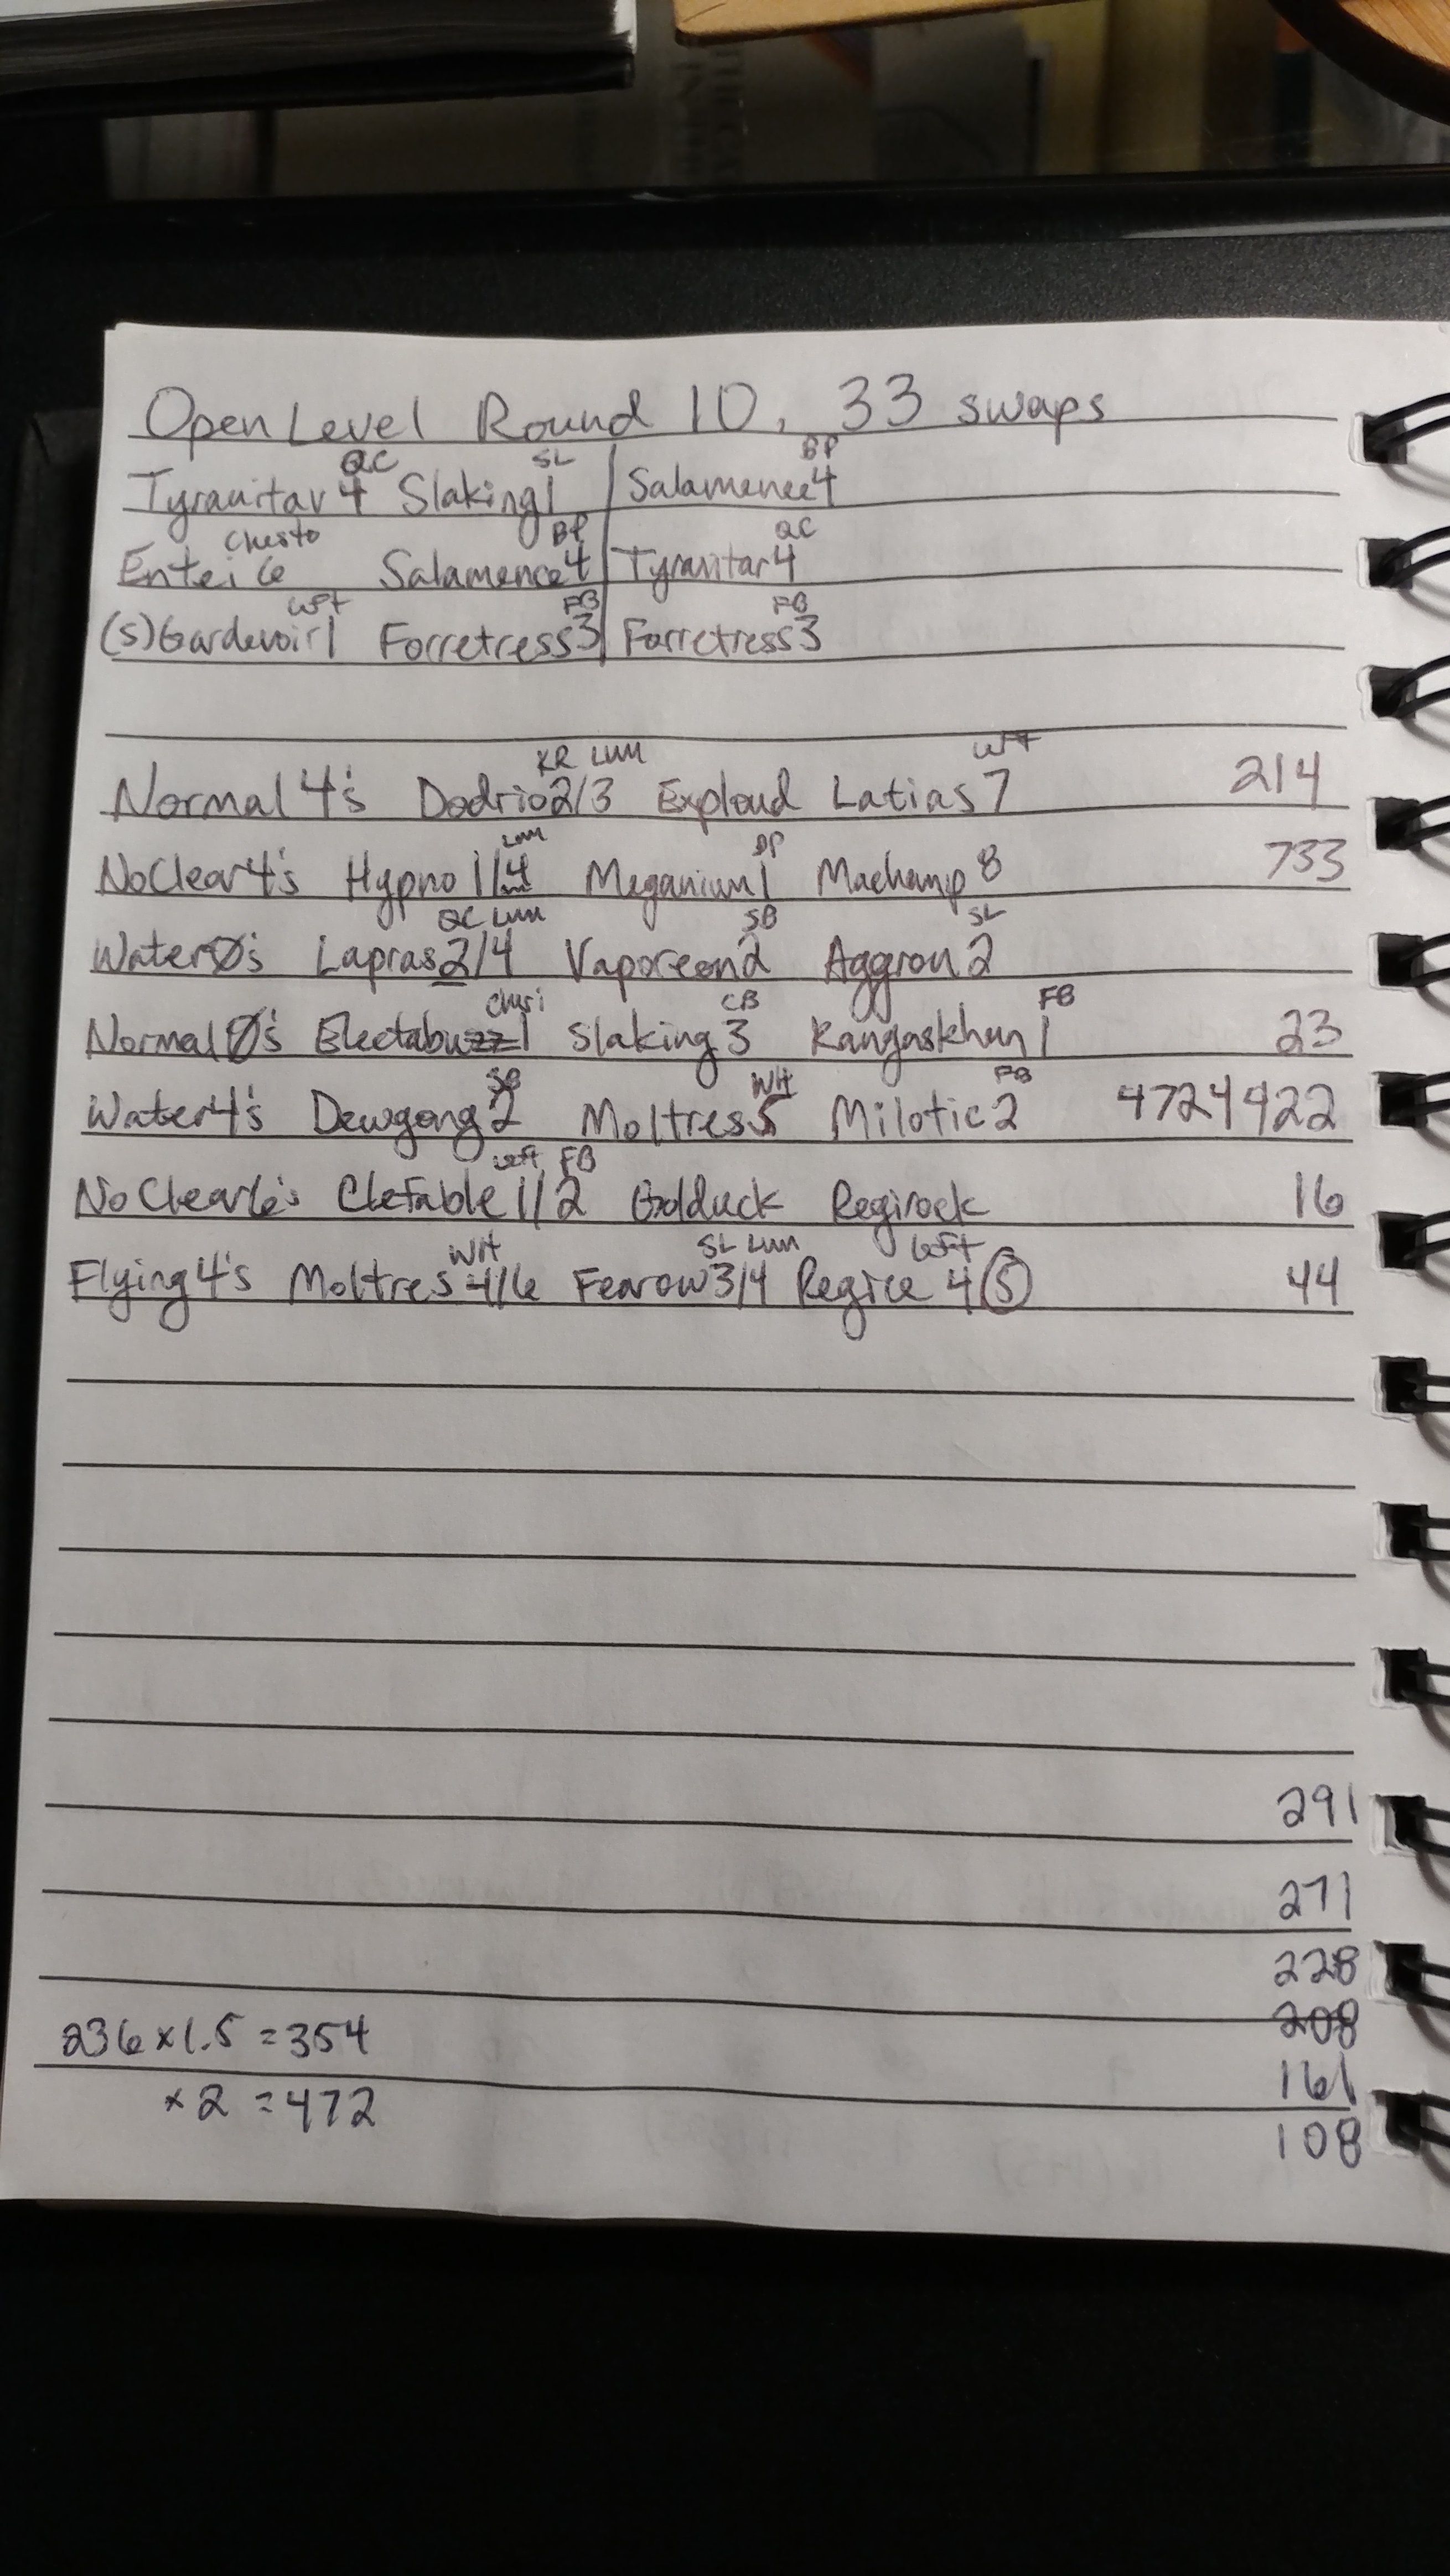 Open Level Round 10, 33 swaps
QC SL BP
Tyranitar 4 Slaking 1 Salamence 4
Chesto BP QC
Entei 6 Salamence 4 Tyranitar 4
Left FB FB
(S) Gardevoir 1 Forretress 3 Forretress 3
KR LUM Left
Normal 4's Dodrio 2/3 Exploud Latias 7 214
Lum BP
No Clear 4's Hypno 1/4 Meganium 1 Machamp 8 733
QC LUM SB SL
Water 0's Lapras 2/4 Vaporeon 2 Aggron 2
Cheri CB FB
Normal 0's Electabuzz 1 Slaking 3 Kangaskhan 1 23
SB WH FB
Water 4's Dewgong 2 Moltres 5 Milotic 2 4724422
Left FB
No Clear 6's Clefable 1/2 Golduck Regirock 16
WH SL Lum Left
Flying 4's Moltres 4/6 Fearow 3/4 Regice 4 (5) 44
291
271
228
208
236 x 1.5 = 354
161
x 2 = 472
108